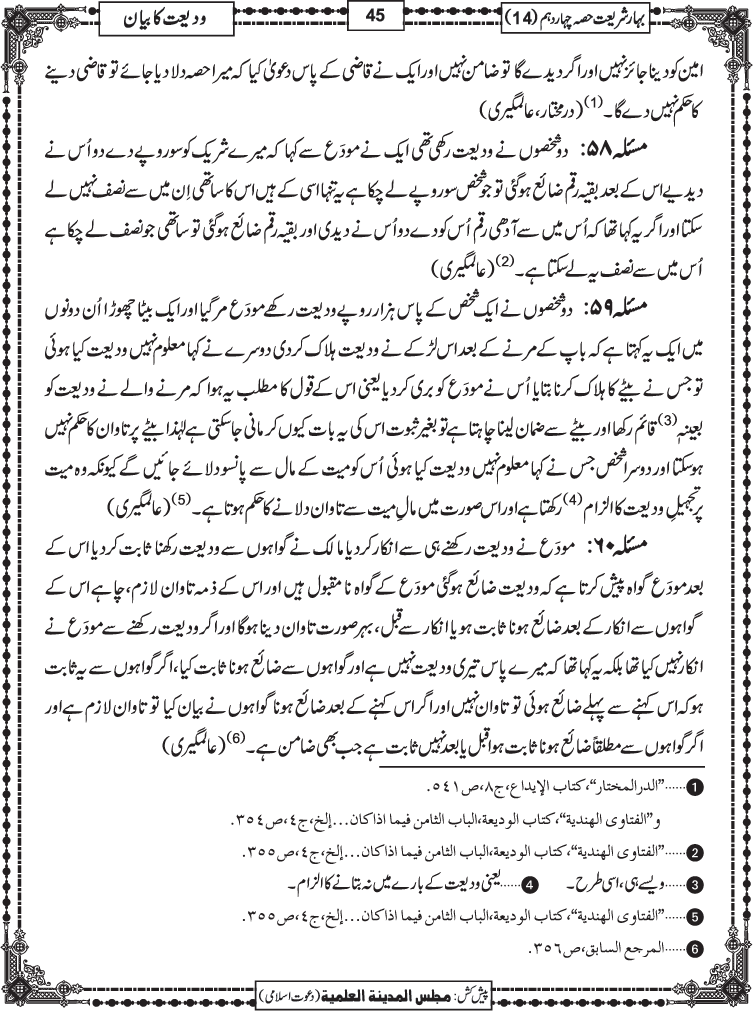 بہارِ شریعت حصہ چہاردہم (14)
45
ودیعت کا بیان
امین کو دینا جائز نہیں اور اگر دیدے گا تو ضامن نہیں اور ایک نے قاضی کے پاس دعویٰ کیا کہ میرا حصہ دلا دیا جائے تو قاضی دینے
کا حکم نہیں دے گا۔(1) (درمختار، عالمگیری)
مسئلہ ۵۸: دو شخصوں نے ودیعت رکھی تھی ایک نے مودَع سے کہا کہ میرے شریک کو سو روپے دے دو اُس نے
دیدیے اس کے بعد بقیہ رقم ضائع ہوگئی تو جو شخص سو روپے لے چکا ہے یہ تنہا اسی کے ہیں اس کا ساتھی اِن میں سے نصف نہیں لے
سکتا اور اگر یہ کہا تھا کہ اُس میں سے آدھی رقم اُس کو دے دو اُس نے دیدی اور بقیہ رقم ضائع ہوگئی تو ساتھی جو نصف لے چکا ہے
اُس میں سے نصف یہ لے سکتا ہے۔(2) (عالمگیری)
مسئلہ ۵۹: دو شخصوں نے ایک شخص کے پاس ہزار روپے ودیعت رکھے مودَع مرگیا اور ایک بیٹا چھوڑا اُن دونوں
میں ایک یہ کہتا ہے کہ باپ کے مرنے کے بعد اس لڑکے نے ودیعت ہلاک کردی دوسرے نے کہا معلوم نہیں ودیعت کیا ہوئی
تو جس نے بیٹے کا ہلاک کرنا بتایا اُس نے مودَع کو بری کردیا یعنی اس کے قول کا مطلب یہ ہوا کہ مرنے والے نے ودیعت کو
بعینہ(3) قائم رکھا اور بیٹے سے ضمان لینا چاہتا ہے تو بغیر ثبوت اس کی یہ بات کیوں کر مانی جاسکتی ہے لہٰذا بیٹے پر تاوان کا حکم نہیں
ہوسکتا اور دوسرا شخص جس نے کہا معلوم نہیں ودیعت کیا ہوئی اُس کو میت کے مال سے پانسو دلائے جائیں گے کیونکہ وہ میت
پر تجہیلِ ودیعت کا الزام(4) رکھتا ہے اور اس صورت میں مالِ میت سے تاوان دلانے کا حکم ہوتا ہے۔(5) (عالمگیری)
مسئلہ ۶۰: مودَع نے ودیعت رکھنے ہی سے انکار کردیا مالک نے گواہوں سے ودیعت رکھنا ثابت کردیا اس کے
بعد مودَع گواہ پیش کرتا ہے کہ ودیعت ضائع ہوگئی مودَع کے گواہ نامقبول ہیں اور اس کے ذمہ تاوان لازم، چاہے اس کے
گواہوں سے انکار کے بعد ضائع ہونا ثابت ہو یا انکار سے قبل، بہر صورت تاوان دینا ہوگا اور اگر ودیعت رکھنے سے مودَع نے
انکار نہیں کیا تھا بلکہ یہ کہا تھا کہ میرے پاس تیری ودیعت نہیں ہے اور گواہوں سے ضائع ہونا ثابت کیا، اگر گواہوں سے یہ ثابت
ہو کہ اس کہنے سے پہلے ضائع ہوئی تو تاوان نہیں اور اگر اس کہنے کے بعد ضائع ہونا گواہوں نے بیان کیا تو تاوان لازم ہے اور
اگر گواہوں سے مطلقاً ضائع ہونا ثابت ہوا قبل یا بعد نہیں ثابت ہے جب بھی ضامن ہے۔(6) (عالمگیری)
1......"الدرالمختار"،کتاب الإیداع،ج٨،ص٥٤١.
و"الفتاوی الهندیة"،کتاب الودیعة،الباب الثامن فیما اذاکان...إلخ،ج٤،ص٣٥٤.
2......"الفتاوی الهندیة"،کتاب الودیعة،الباب الثامن فیما اذاکان...إلخ،ج٤،ص٣٥٥.
3......ویسے ہی، اسی طرح۔ 4......یعنی ودیعت کے بارے میں نہ بتانے کا الزام۔
5......"الفتاوی الهندیة"،کتاب الودیعة،الباب الثامن فیما اذاکان...إلخ،ج٤،ص٣٥٥.
6......المرجع السابق،ص٣٥٦.
پیش کش: مجلس المدینة العلمیة (دعوت اسلامی)